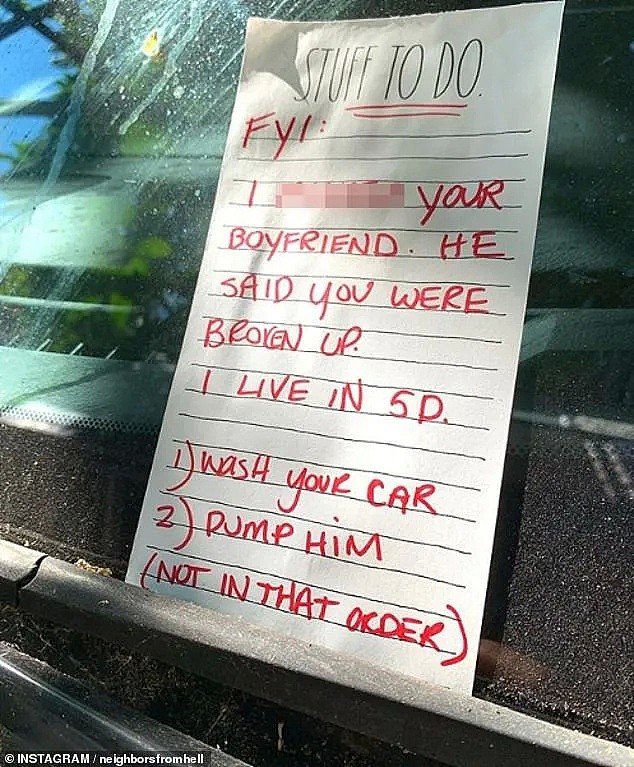 STUFF TO DO.
FYI:
I YOUR
BOYFRIEND. HE
SAID YOU WERE
BROKEN UP.
I LIVE IN 5D.
1) WASH YOUR CAR
2) DUMP HIM
(NOT IN THAT ORDER)
© INSTAGRAM / neighborsfromhell